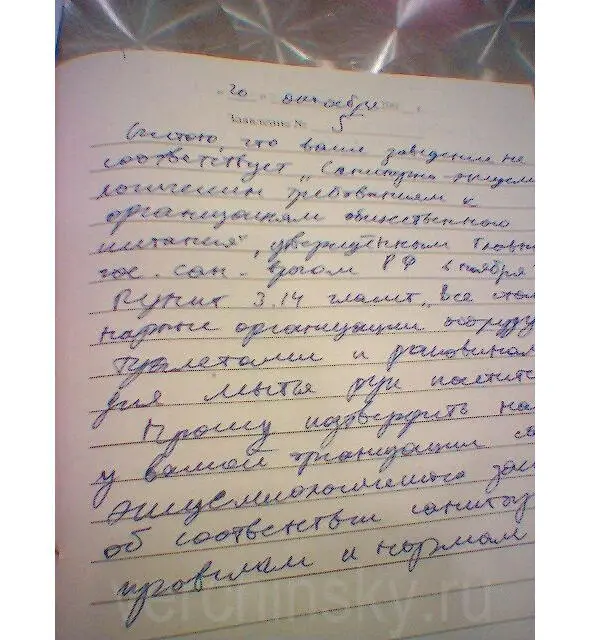 20 октября
Заявление № 5
Считаю, что ваше заведение не
соответствует „Санитарно-эпидем
логическим требованиям к
организациям общественного
питания", утверждённым Главн
гос. сан. врачом РФ в ноября
Пункт 3.14 гласит „Все
нарные организации оборуду
туалетами и раковинам
для мытья рук
Прошу подтвердить на
у вашей организации са
эпидемиологического зак
об соотвенствии санитар
правилам и нормам
verchinsky.ru